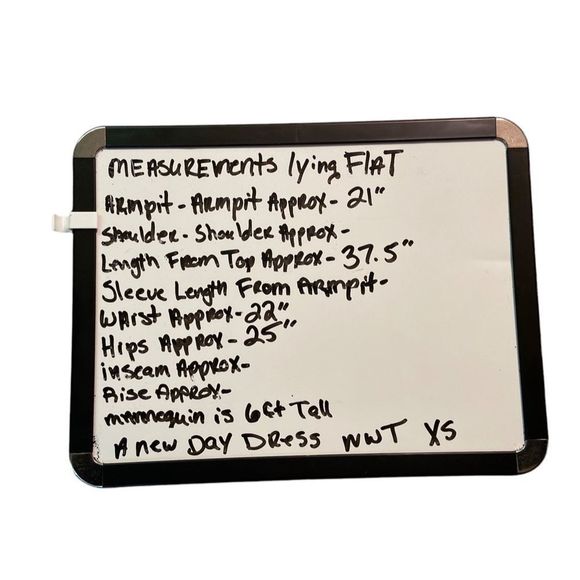 MEASUREMENTS lying FLAT
ARMpit - ARMpit Approx - 21"
Shoulder - Shoulder Approx -
Length From Top Approx - 37.5"
Sleeve Length From ARMpit -
WAist Approx - 22"
Hips Approx - 25"
inseam Approx -
Rise Approx -
mannequin is 6ft Tall
A new DAY DRESS NWT XS